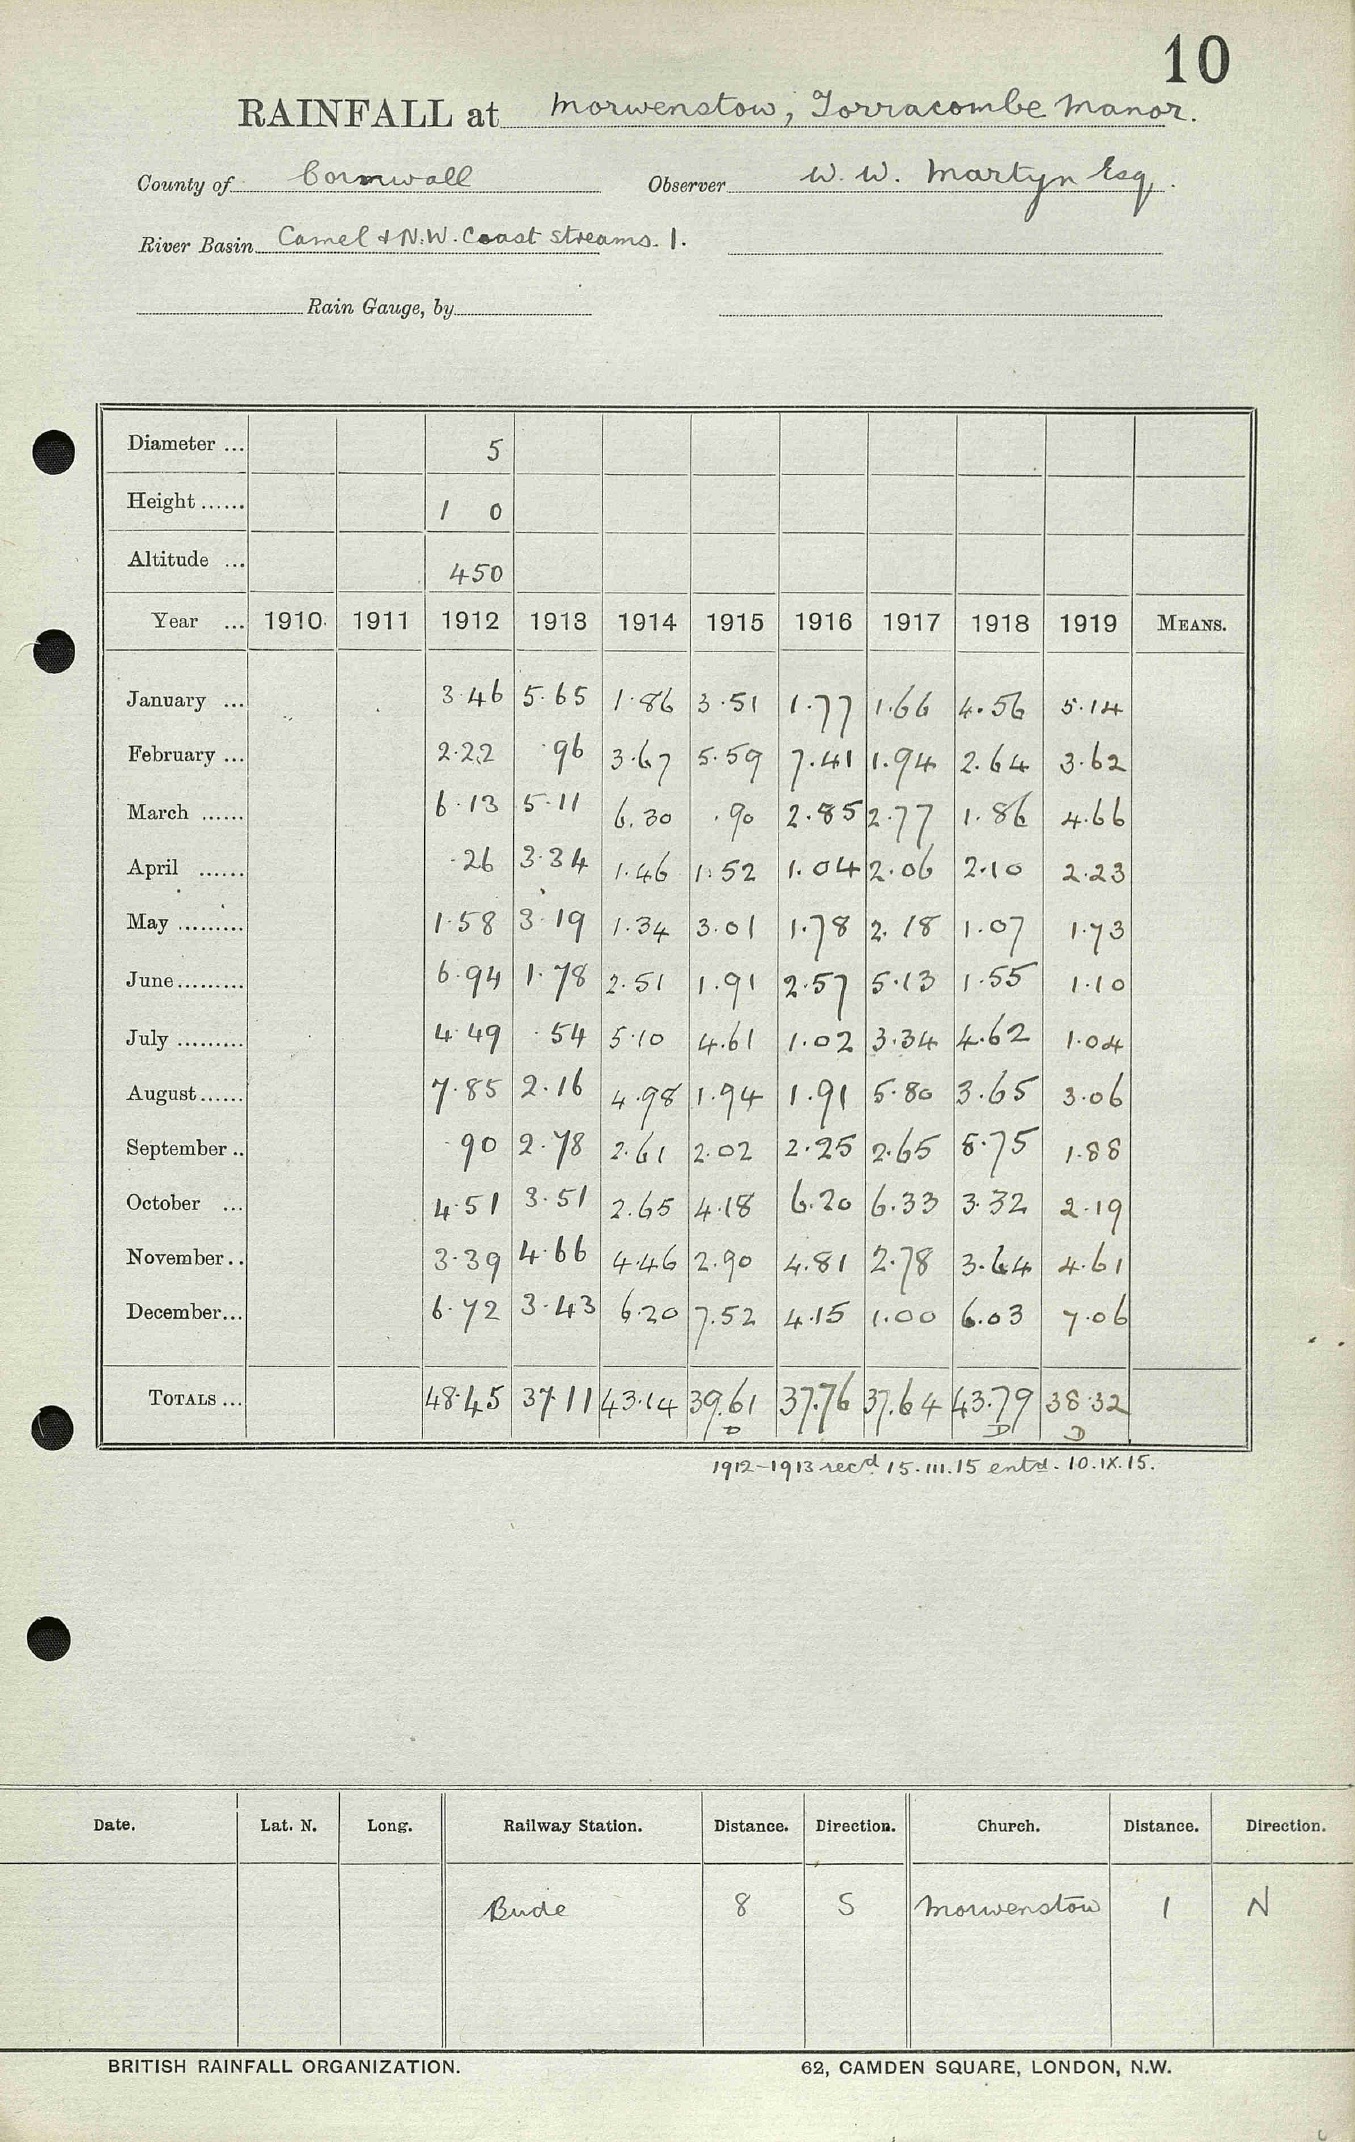 10
RAINFALL at Morwenstow, Torracombe Manor.
County of Cornwall Observer W. W. Martyn Esq.
River Basin Camel & N.W. Coast streams. 1.
Rain Gauge, by
Diameter ... 5
Height ...... 1 0
Altitude ... 450
Year ... 1910 1911 1912 1913 1914 1915 1916 1917 1918 1919 MEANS.
January ... 3.46 5.65 1.86 3.51 1.77 1.66 4.56 5.14
February ... 2.22 .96 3.67 5.59 7.41 1.94 2.64 3.62
March ...... 6.13 5.11 6.30 .90 2.85 2.77 1.86 4.66
April ...... .26 3.34 1.46 1.52 1.04 2.06 2.10 2.23
May ......... 1.58 3.19 1.34 3.01 1.78 2.18 1.07 1.73
June ......... 6.94 1.78 2.51 1.91 2.57 5.13 1.55 1.10
July ......... 4.49 .54 5.10 4.61 1.02 3.34 4.62 1.04
August ...... 7.85 2.16 4.98 1.94 1.91 5.80 3.65 3.06
September .. .90 2.78 2.61 2.02 2.25 2.65 8.75 1.88
October ... 4.51 3.51 2.65 4.18 6.20 6.33 3.32 2.19
November .. 3.39 4.66 4.46 2.90 4.81 2.78 3.64 4.61
December ... 6.72 3.43 6.20 7.52 4.15 1.00 6.03 7.06
TOTALS ... 48.45 37.11 43.14 39.61 37.76 37.64 43.79 38.32
D D D
1912-1913 recd 15.III.15 entd. 10.IX.15.
Date. Lat. N. Long. Railway Station. Distance. Direction. Church. Distance. Direction.
Bude 8 S Morwenstow 1 N
BRITISH RAINFALL ORGANIZATION. 62, CAMDEN SQUARE, LONDON, N.W.